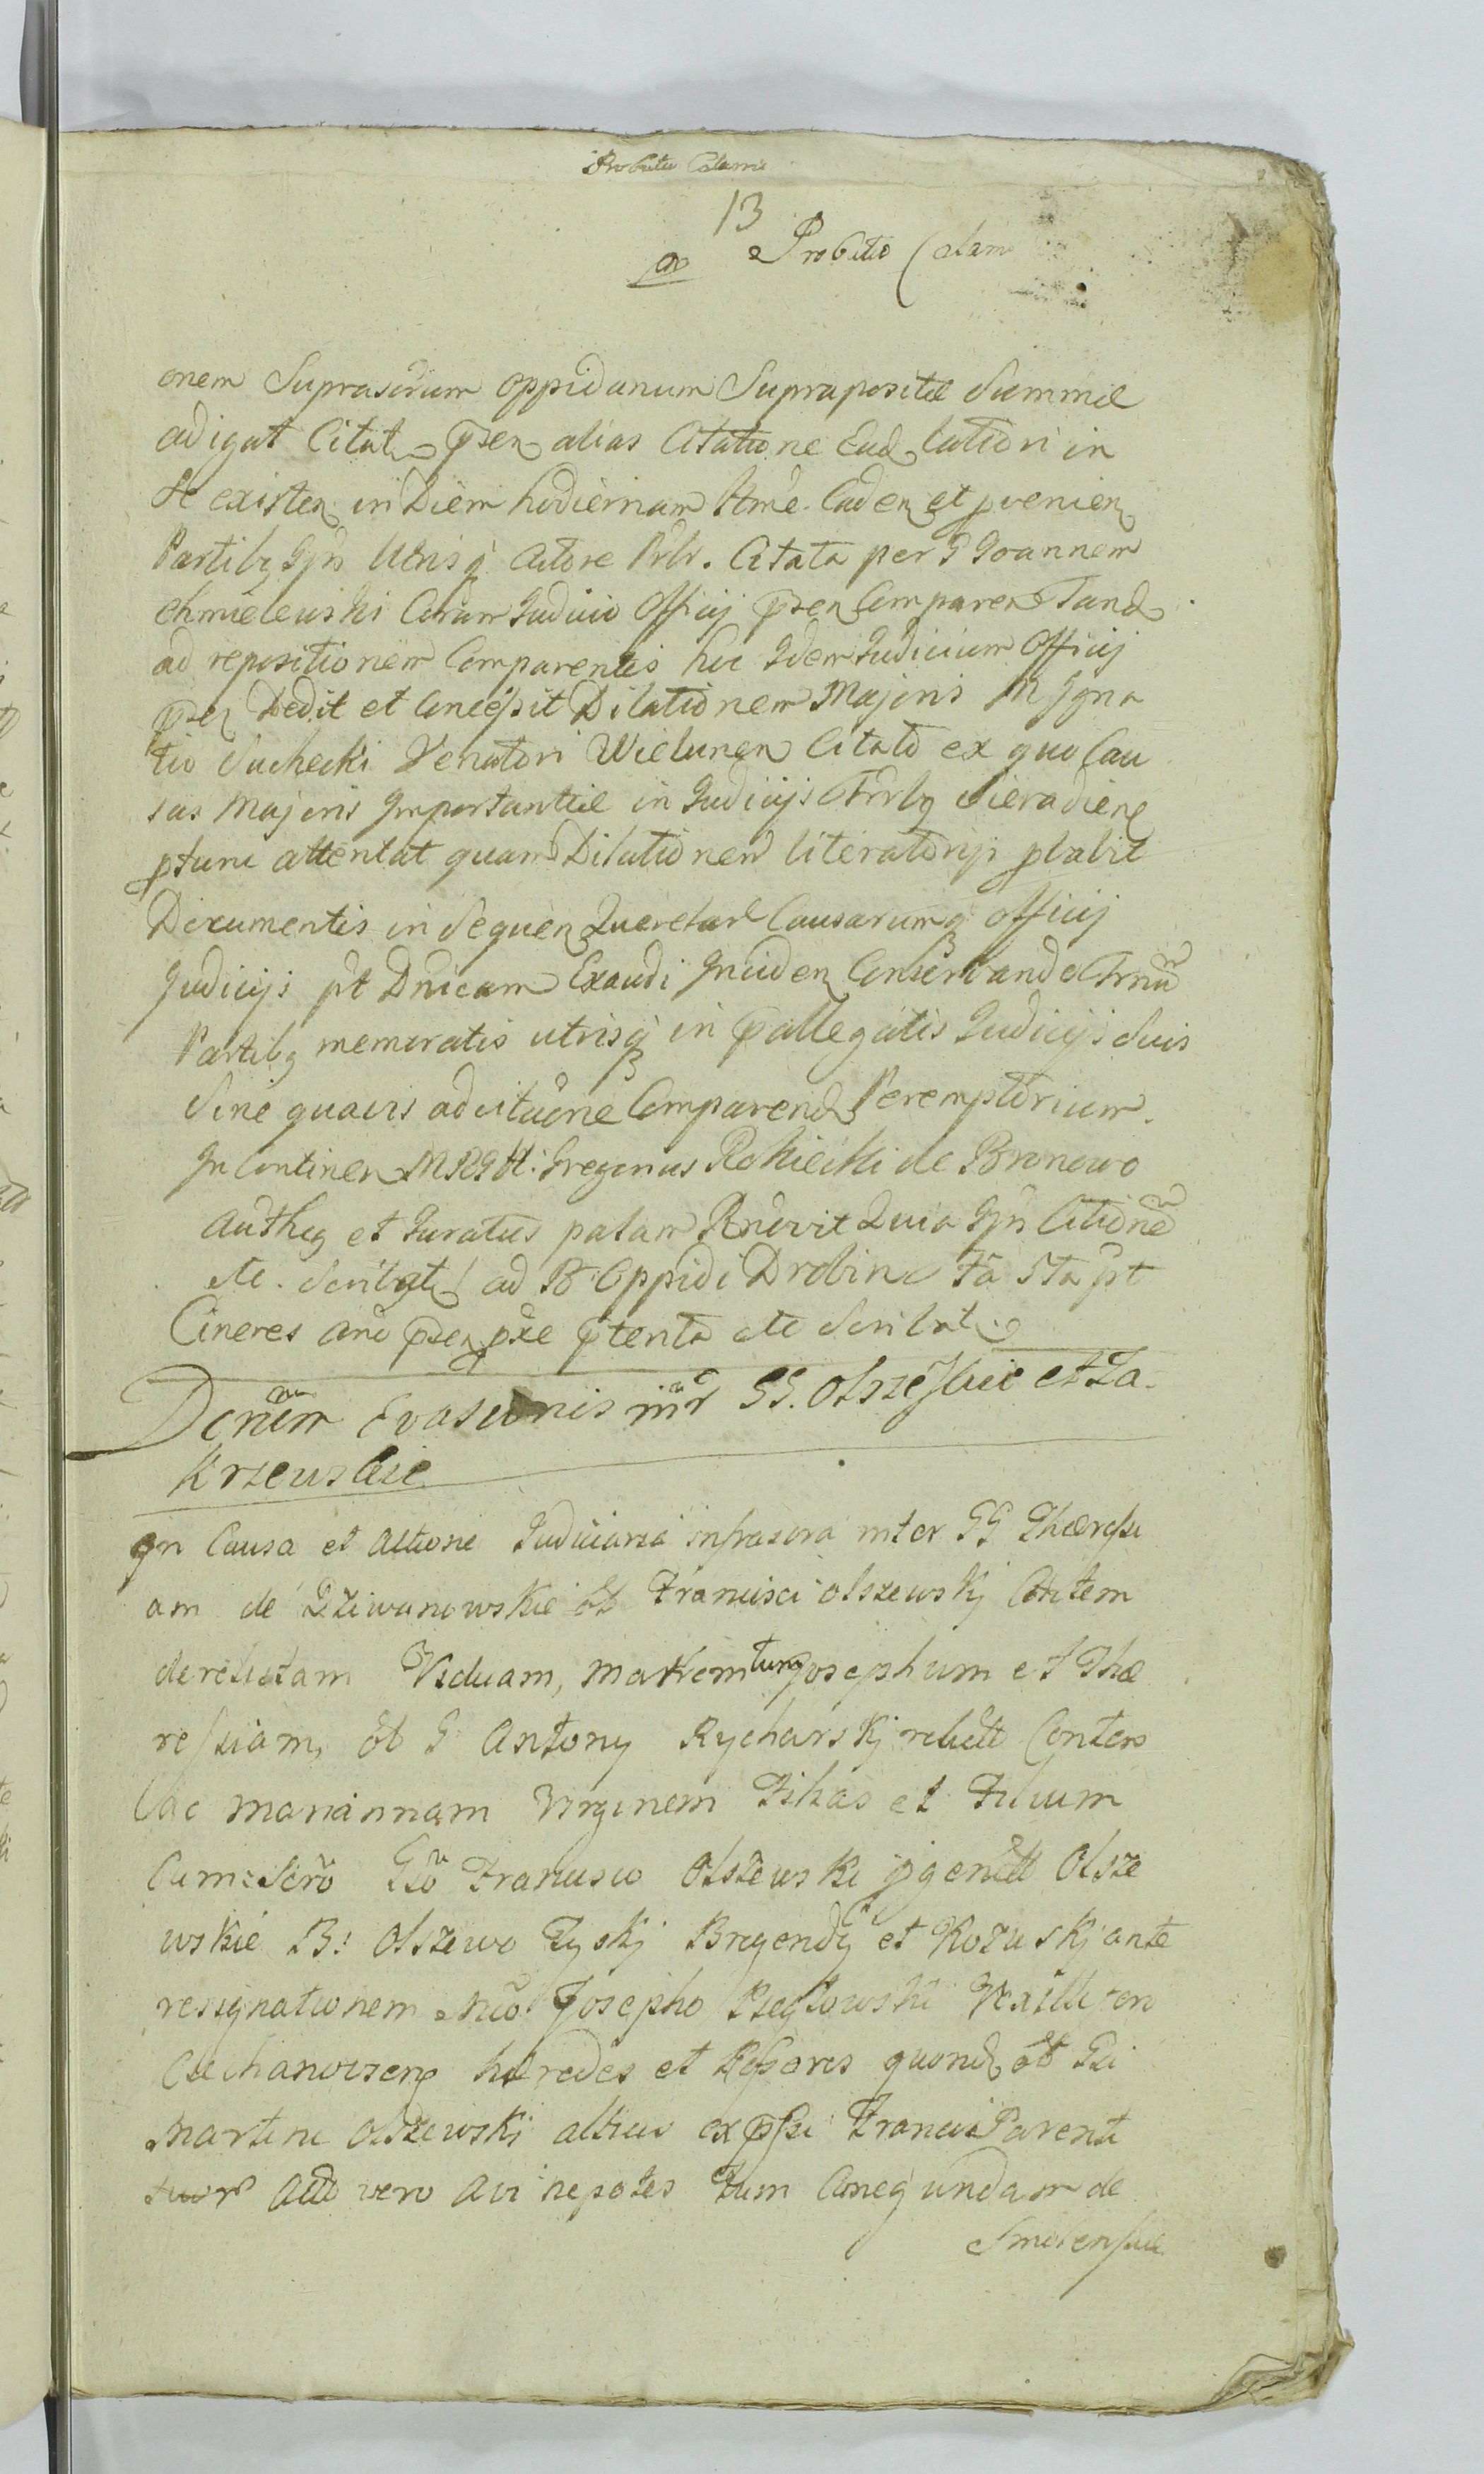 Probatio Calami
13
Probatio Calam
onem Suprascrium oppidanum Suprapositæ Summæ
adigat Citat psen alias Citatione Ead latiori in
se existen in Diem hodiernam Ttme Caden et pvenien
Partibq Ipis Utrisq Actore Prlr. Citata per G Joannem
Chmielewski Coram Judicio Officij psen Comparen Tand
ad repositionem Comparentis hoc Idem Judicium Officij
psen Dedit et Concessit Dilationem Majoris M Igna
tio Suchecki Venatori Wielunen Citato ex quo Cau
sas Majoris Importantiæ in Judicijs Trrlbq Sieradien
ptunc attentat quam Dilationem literatorijs pbabit
Documentis in Sequen Querelar Causarumq officij
Judicijs pt Dnicam Exaudi Inciden Conservando Trmu
Partibq memoratis utrisq in pallegatis Judicijs Suis
Sine quavis adcitaone Comparend Peremptorium.
In Continen M Rgtt: Gregorius Rokicki de Bronowo
Authcq et Juratus palam Rnovit Quia Ipis Citionem
etc. Scribat ad B Oppidi Drobin fa 5ta pt
Cineres ano psen pxe ptenta etc Scribat
Dcrum Evasionis intr GG. Olszewskie et Za.
krzewskie
In Causa et actione Judiciaria infrascra inter GG Theressi
am de Dziwanowskie olt Francisci olszewskj Contem
derelictam Viduam, matrem tum Josephum et The
ressiam, olt G Antony Rycharskj relictt Contem
ac mariannam Virginem Filias et Filium
Cum Scro Gso Francisco olszewski pgenitt Olsze
wskie B: Olszewo Zyskj Bregendy et Kozuskj ante
resignationem Mco Josepho Zegtowski Vexillifero
Ciechanovien hæredes et Possores quond olt Gi
Martini olszewskj altius expssi Franci Parent
suor Acto vero avi nepotes tum Cunegundam de
Smolenskie